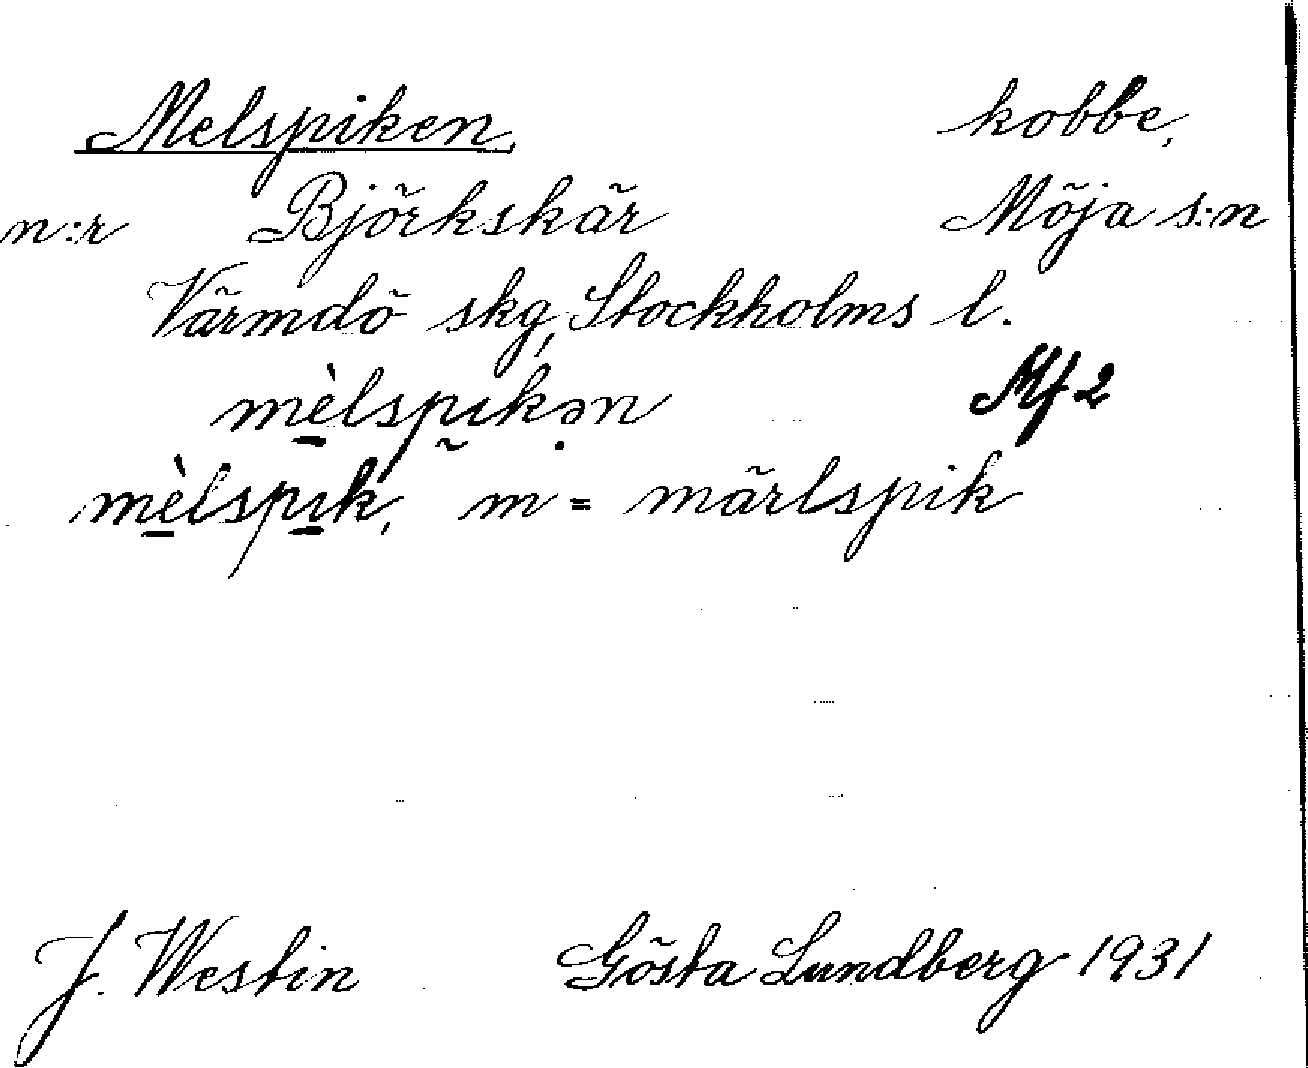 Melspiken, kobbe,
n:r Björkskär Möja s:n
Värmdö skg, Stockholms l.
mèlspikən Mf2
mèlspik, m = märlspik
J. Westin Gösta Lundberg 1931